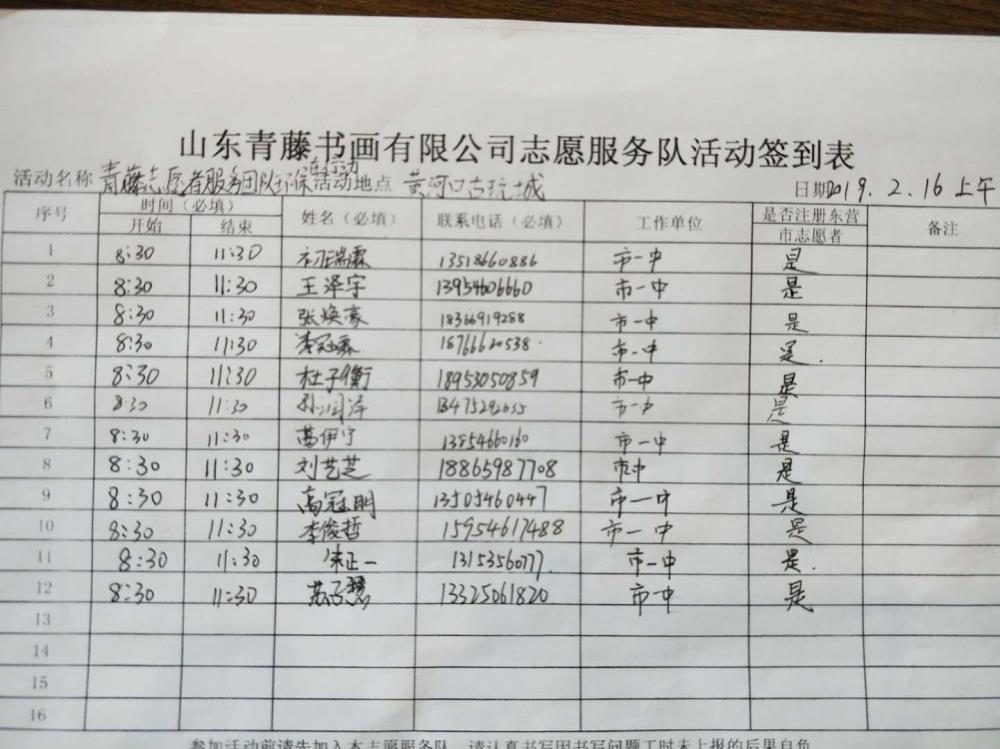 山东青藤书画有限公司志愿服务队活动签到表
在行动
活动名称 青藤志愿者服务团队环保 活动地点 黄河口古玩城 日期 2019.2.16 上午
序号 时间（必填） 姓名（必填） 联系电话（必填） 工作单位 是否注册东营市志愿者 备注
开始 结束
1 8:30 11:30 初瑞霖 13518660886 市一中 是
2 8:30 11:30 王泽宇 13954606660 市一中 是
3 8:30 11:30 张焕豪 18366919288 市一中 是
4 8:30 11:30 李冠霖 18766620538 市一中 是.
5 8:30 11:30 杜子衡 18953050859 市一中 是
6 8:30 11:30 孙润泽 市一中 是
7 8:30 11:30 葛伊宁 13854660160 市一中 是
8 8:30 11:30 刘艺芝 18865987708 市一中 是
9 8:30 11:30 高冠明 13505460447 市一中 是
10 8:30 11:30 李俊哲 15954617488 市一中 是
11 8:30 11:30 朱正一 市一中 是.
12 8:30 11:30 13325061820 市一中 是
13
14
15
16
参加活动前请先加入本志愿服务队，请认真书写因书写问题工时未上报的后果自负